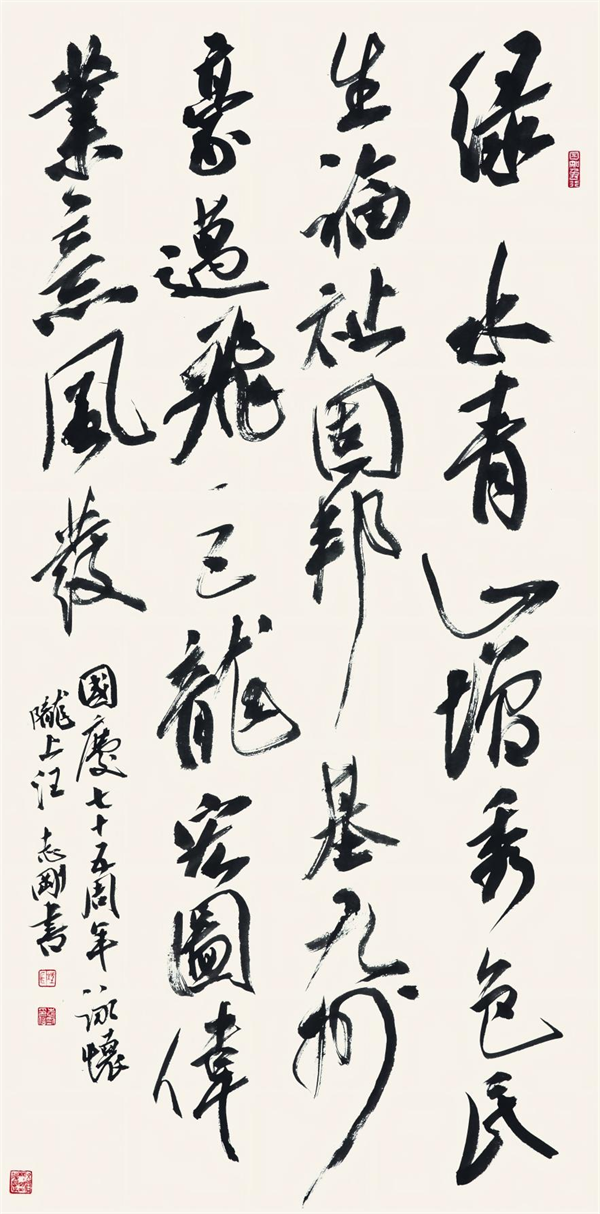 绿水青山增秀色民
生福祉固邦基九州
豪邁飛巨龍宏圖偉
業意風發
國慶七十五周年詠懷
隴上汪志剛書